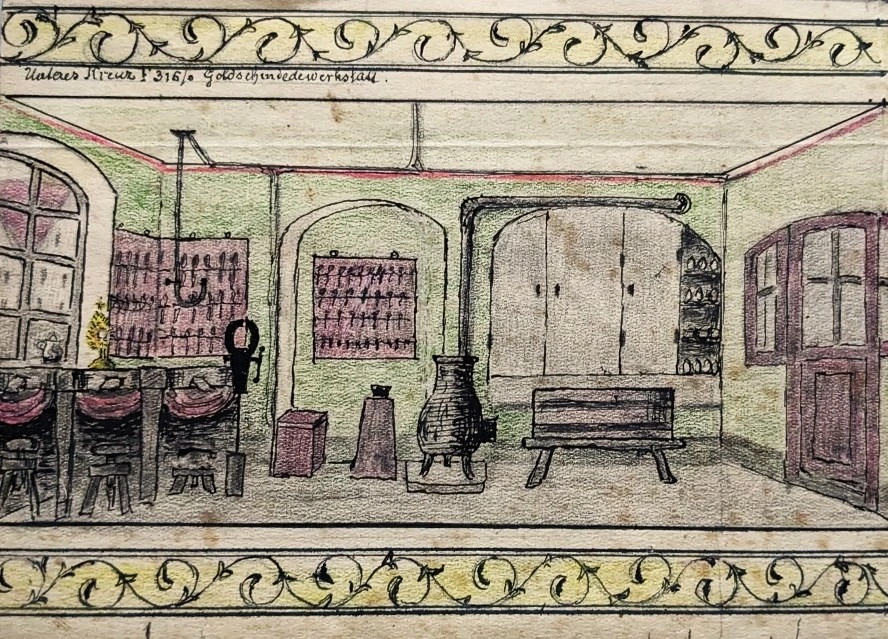 Unteres Kreuz F 316/o Goldschmiedewerkstatt.